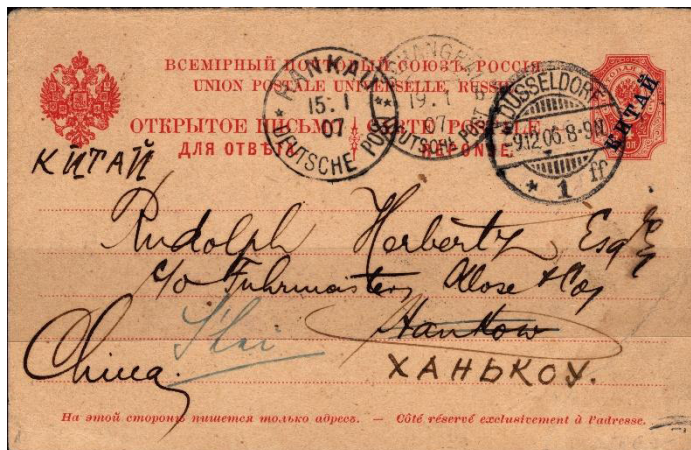 ВСЕМІРНЫЙ ПОЧТОВЫЙ СОЮЗЪ. РОССІЯ.
UNION POSTALE UNIVERSELLE, RUSSIE
ОТКРЫТОЕ ПИСЬМО CARTE POSTALE
ДЛЯ ОТВѢТА RÉPONSE
HANKAU
15.1
07
DEUTSCHE POST
SHANGHAI
19.1
07
DEUTSCHE POST
DÜSSELDORF
9.12.06.8-9N
* 1 ff
КИТАЙ
КИТАЙ
Rudolph Herbertz Esq
c/o Fuhrmaster, Klose & Co,
Hankow
S'hai
China.
ХАНЬКОУ.
На этой сторонѣ пишется только адресъ. — Côté réservé exclusivement à l'adresse.